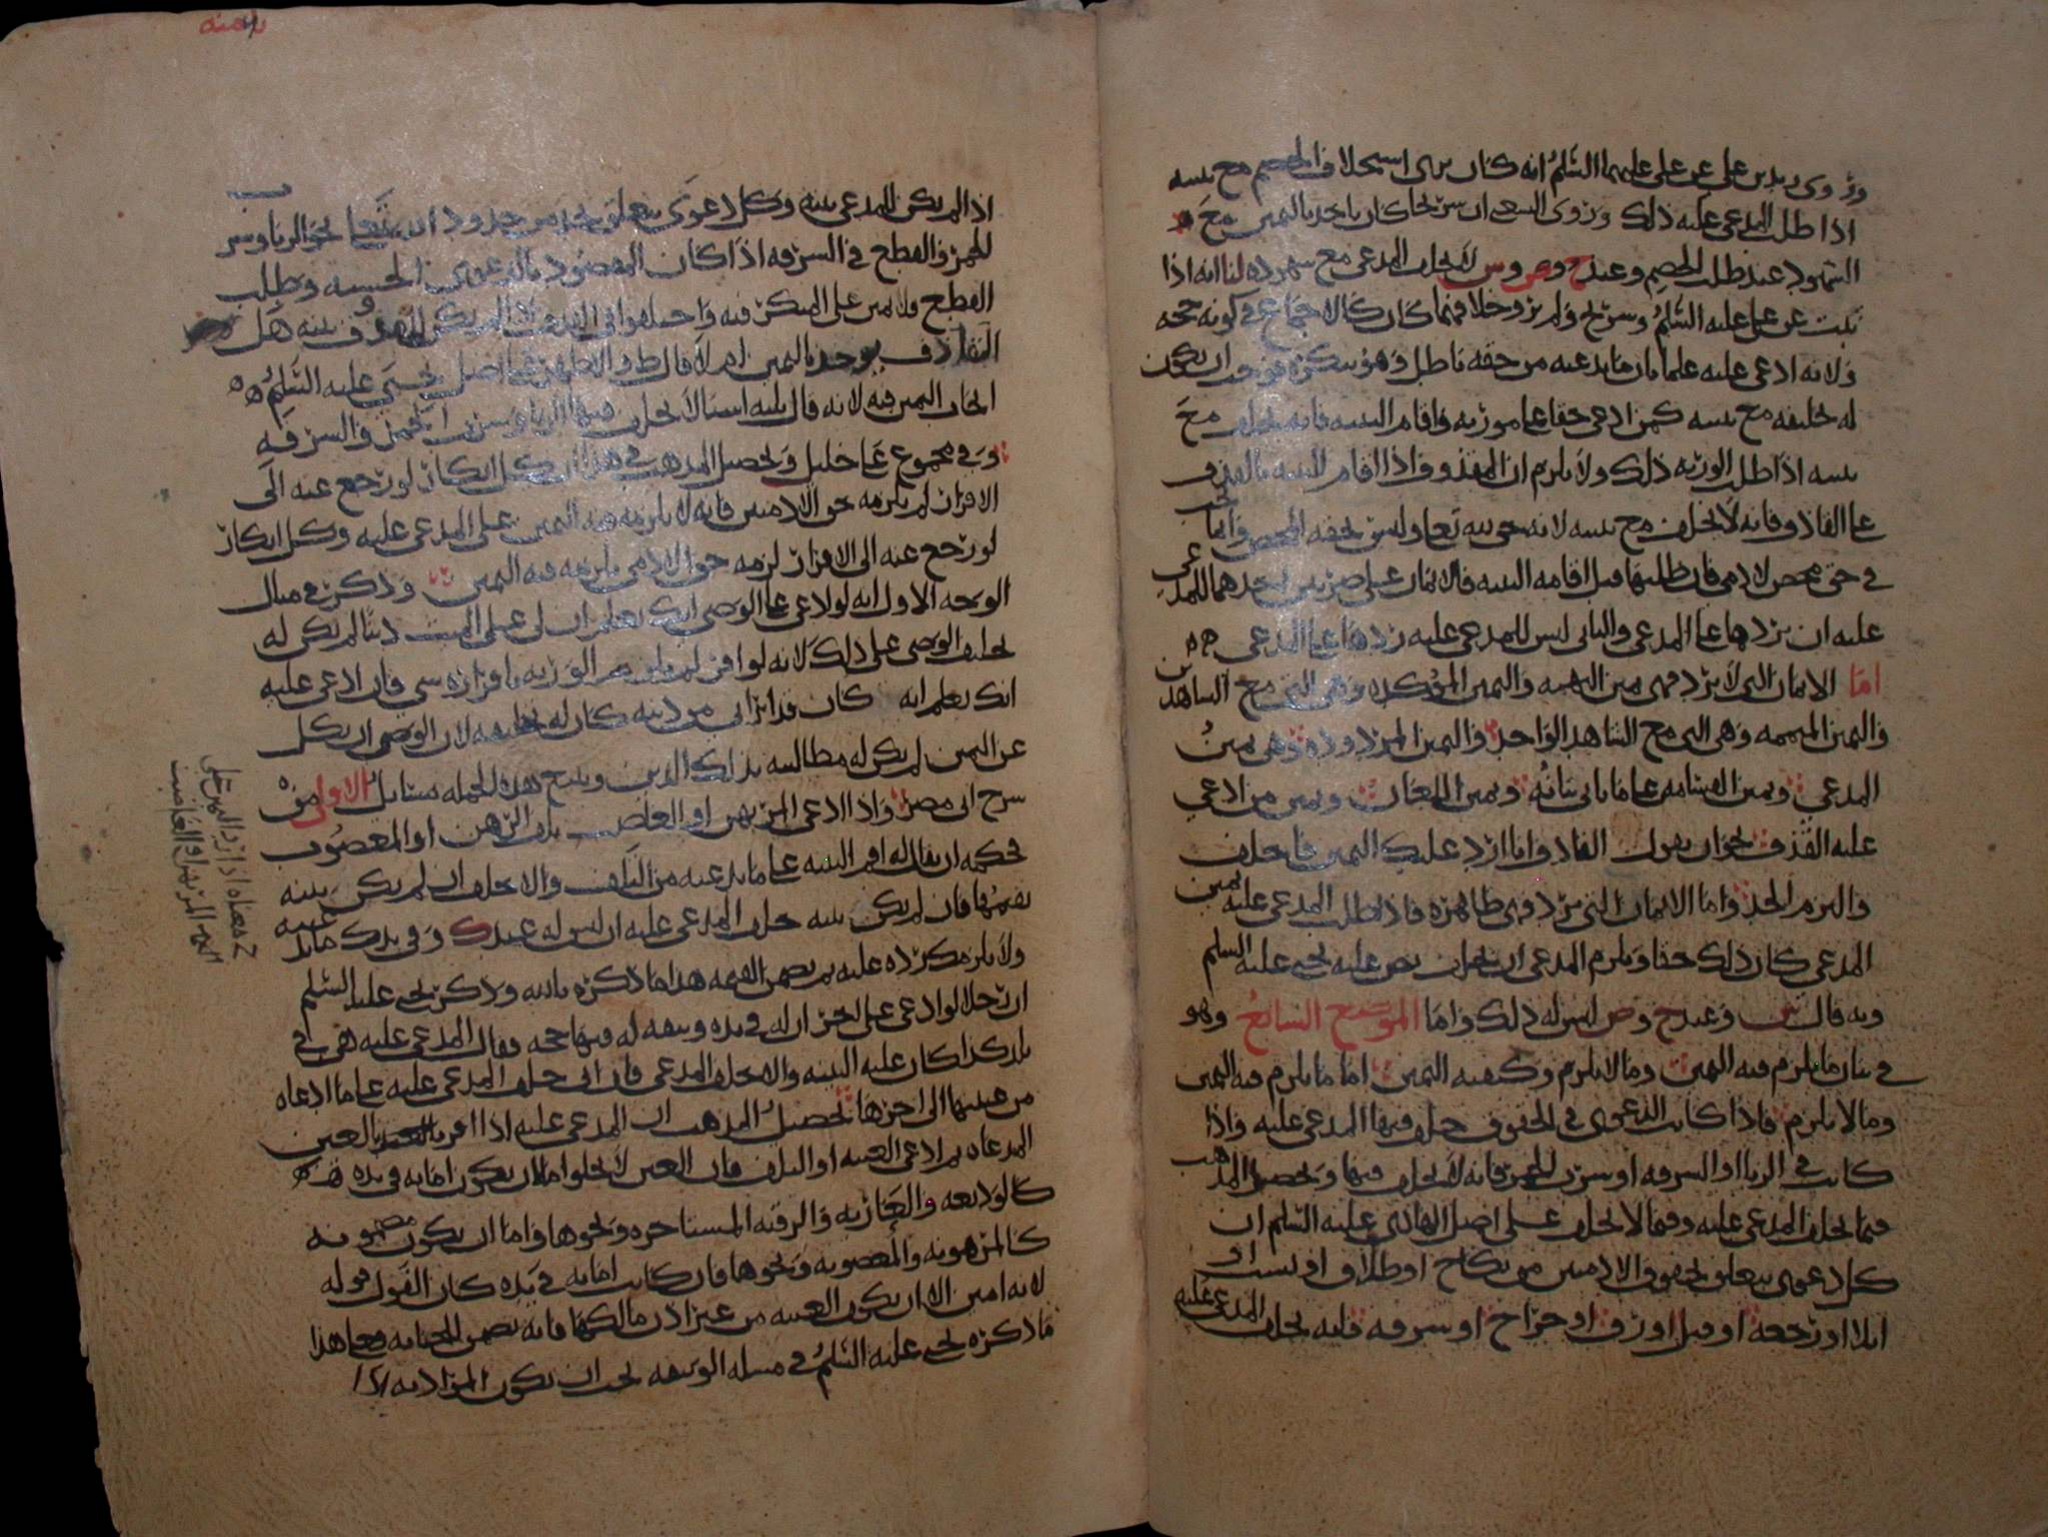 وروى زيد بن علي عن علي عليهما السلم انه كان يرى استحلاف الخصم مع بينته
اذا طلب المدعى عليه ذلك وروى الشعبي ان شريحا كان ياخذ باليمين مع
الشهود عند طلب الخصم وعند ح وص وش لا يحلف المدعي مع شهوده لنا انه اذا
ثبت عن علي عليه السلم وشريح ولم يرو خلافهما كان كالاجماع في كونه حجة
ولانه ادعى عليه علما بان ما يدعيه من حقه باطل وهو ينكره فوجب ان يكون
له تحليفه مع بينته كمن ادعى حقا على مورثه واقام البينة فانه يحلف مع
بينته اذا طلب الورثة ذلك ولا يلزم ان المقذوف اذا اقام البينة بالقذف
على القاذف فانه لا يحلف مع بينته لانه حق لله تعالى وليس بحقه المحض وانما يجب
في حق محض لادمي فان طلبها قبل اقامة البينة فالايمان على ضربين احدهما للمدعى
عليه ان يردها على المدعي والثاني ليس للمدعى عليه ردها على المدعي
اما الايمان التي لا ترد فهي يمين التهمة واليمين المؤكدة وهي التي مع الشاهدين
واليمين المتممة وهي التي مع الشاهد الواحد واليمين المردودة وهي يمين
المدعي ويمين القسامة على ما ياتي بيانه ويمين اللعان ويمين من ادعي
عليه القذف نحو ان يقول القاذف انا ارد عليك اليمين فاحلف
والتزم الحد واما الايمان التي ترد فهي ظاهرة فاذا طلب المدعى عليه يمين
المدعي كان ذلك حقا ويلزم المدعي ان يحلف نص عليه يحيى عليه السلم
وبه قال ش وعند ح وص ليس له ذلك واما الموضع السابع وهو
في بيان ما يلزم فيه اليمين وما لا يلزم وكيفية اليمين اما ما يلزم فيه اليمين
وما لا يلزم فاذا كانت الدعوى في الحقوق حلف فيها المدعى عليه واذا
كانت في الزنا او السرقة او شرب الخمر فانه لا يحلف فيها وتحصيل المذهب
فيما يحلف المدعى عليه وفيما لا يحلف على اصل الهادي عليه السلم ان
كل دعوى يتعلق بحقوق الادميين من نكاح او طلاق او نسب او
ايلا او رجعة او قتل او رق او جراح او سرقة فانه يحلف المدعى عليه
اذا لم يكن للمدعي بينة وكل دعوى يتعلق بحد من حدود الله تعالى نحو الزنا وشرب
الخمر والقطع في السرقة اذا كان المقصود بالدعوى الحسبة وطلب
القطع ولا يمين على المنكر فيه واختلفوا في القذف اذا لم يكن للمقذوف بينة هل
القاذف يوخذ باليمين ام لا قال ط والاظهر على اصل يحيى عليه السلم
ايجاب اليمين فيه لانه قال ثلثة اشيا لا يحلف فيها الزنا وشرب الخمر والسرقة
وفي مجموع علي خليل وتحصيل المذهب في هذا ان كل انكار لو رجع عنه الى
الاقرار لم يلزمه حق الادميين فانه لا يلزمه فيه اليمين على المدعى عليه وكل انكار
لو رجع عنه الى الاقرار لزمه حق الادمي يلزمه فيه اليمين وذكر في مثال
الوجه الاول انه لو ادعى على الوصي انك تعلم ان لي على الميت دينا لم يكن له
تحليف الوصي على ذلك لانه لو اقر لم يلزم الورثة باقراره شي فان ادعى عليه
انك تعلم انه كان قد ابراني من دينه كان له تحليفه لان الوصي ان نكل
عن اليمين لم يكن له مطالبته بذلك الدين ويتبع هذه الجملة مسائل الاولى من
شرح ابي مضر واذا ادعى المرتهن او الغاصب تلف الرهن او المغصوب
فحكمه ان يقال له اقم البينة على ما تدعيه من التلف والا حلف ان لم يكن بينة
يقيمها فان لم يكن بينة حلف المدعى عليه ان ليس له عندك وفي يدك ما يدعيه
ولا يلزمك رده عليه ثم يضمن القيمة هذا ما ذكره باديه وذكر يحيى عليه السلم
ان رجلا لو ادعى على اخر ان له في يده وثيقة له فيها حجة فقال المدعى عليه هي في
بلد كذا كان عليه البينة والا حلف المدعي فان ابى حلف المدعى عليه على ما ادعاه
من غيبتها الى اخرها تحصيل المذهب ان المدعى عليه اذا اقر بالعين
المدعاة ثم ادعى الغيبة او التلف فان العين لا يخلوا اما ان يكون امانة في يده
كالوديعة والعارية والرقبة المستاجرة ونحوها واما ان يكون مضمونة
كالمرهونة والمغصوبة ونحوها فان كانت امانة في يده كان القول قوله
لانه امين الا ان يكون الغيبة من غير اذن مالكها فانه يضمن للجناية فعلى هذا
ما ذكره يحيى عليه السلم في مسلة الوثيقة يجب ان يكون المراد به اذا
معناه اذا رد اليمين على
المرتهن او الغاصب